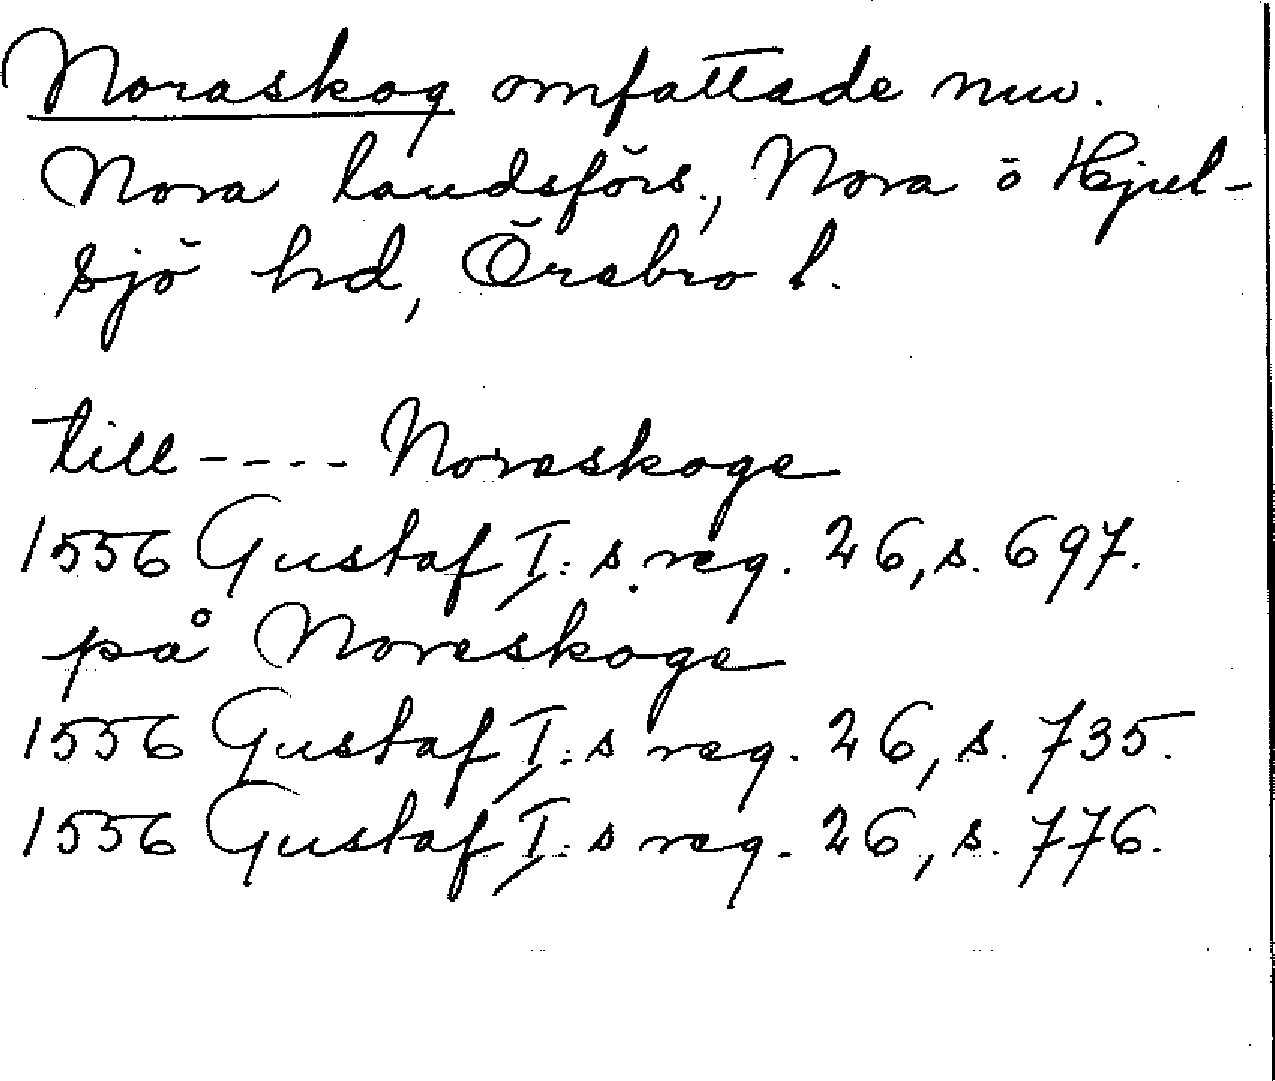 Noraskog omfattade nuv.
Nora landsförs., Nora ö Hjul-
sjö hd, Örebro l.
till ---- Noreskoge
1556 Gustaf I:s reg. 26, s. 697.
på Noreskoge
1556 Gustaf I:s reg. 26, s. 735.
1556 Gustaf I:s reg. 26, s. 776.